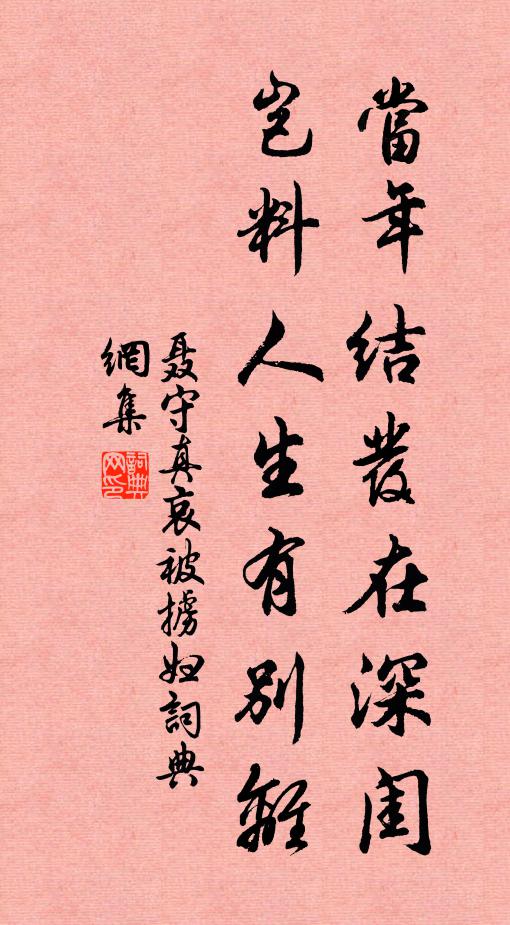 當年結發在深閨
豈料人生有別離
聶守真哀被擄妇詞典
網集
詞典网印